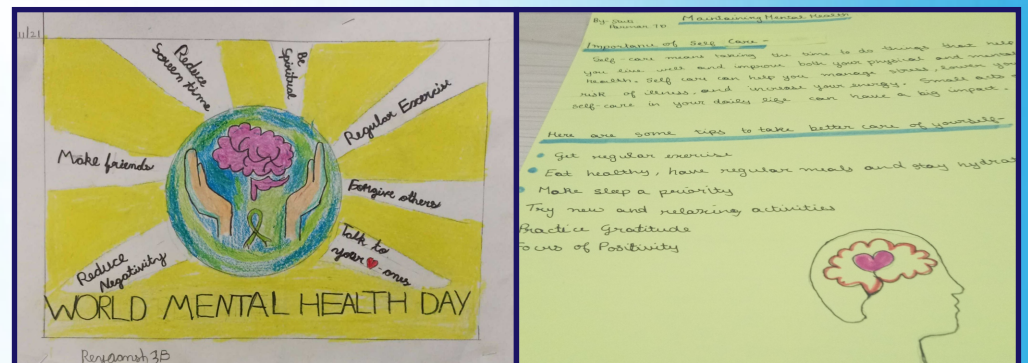 11/21
Reduce
Screen time
Be
Spiritual
Regular Exercise
Make friends
Forgive others
Reduce
Negativity
Talk to
your ❤ ones
WORLD MENTAL HEALTH DAY
3B
By-
7B
Maintaining Mental Health
Importance of Self-Care-
Self-care means taking the time to do things that help
you live well and improve both your physical and mental
health. Self care can help you manage stress, lower you
risk of illness, and increase your energy. Small acts
self-care in your daily life can have a big impact.
Here are some tips to take better care of yourself-
Get regular exercise
Eat healthy, have regular meals and stay hydrat
Make sleep a priority
Try new and relaxing activities
Practice Gratitude
Focus of Positivity